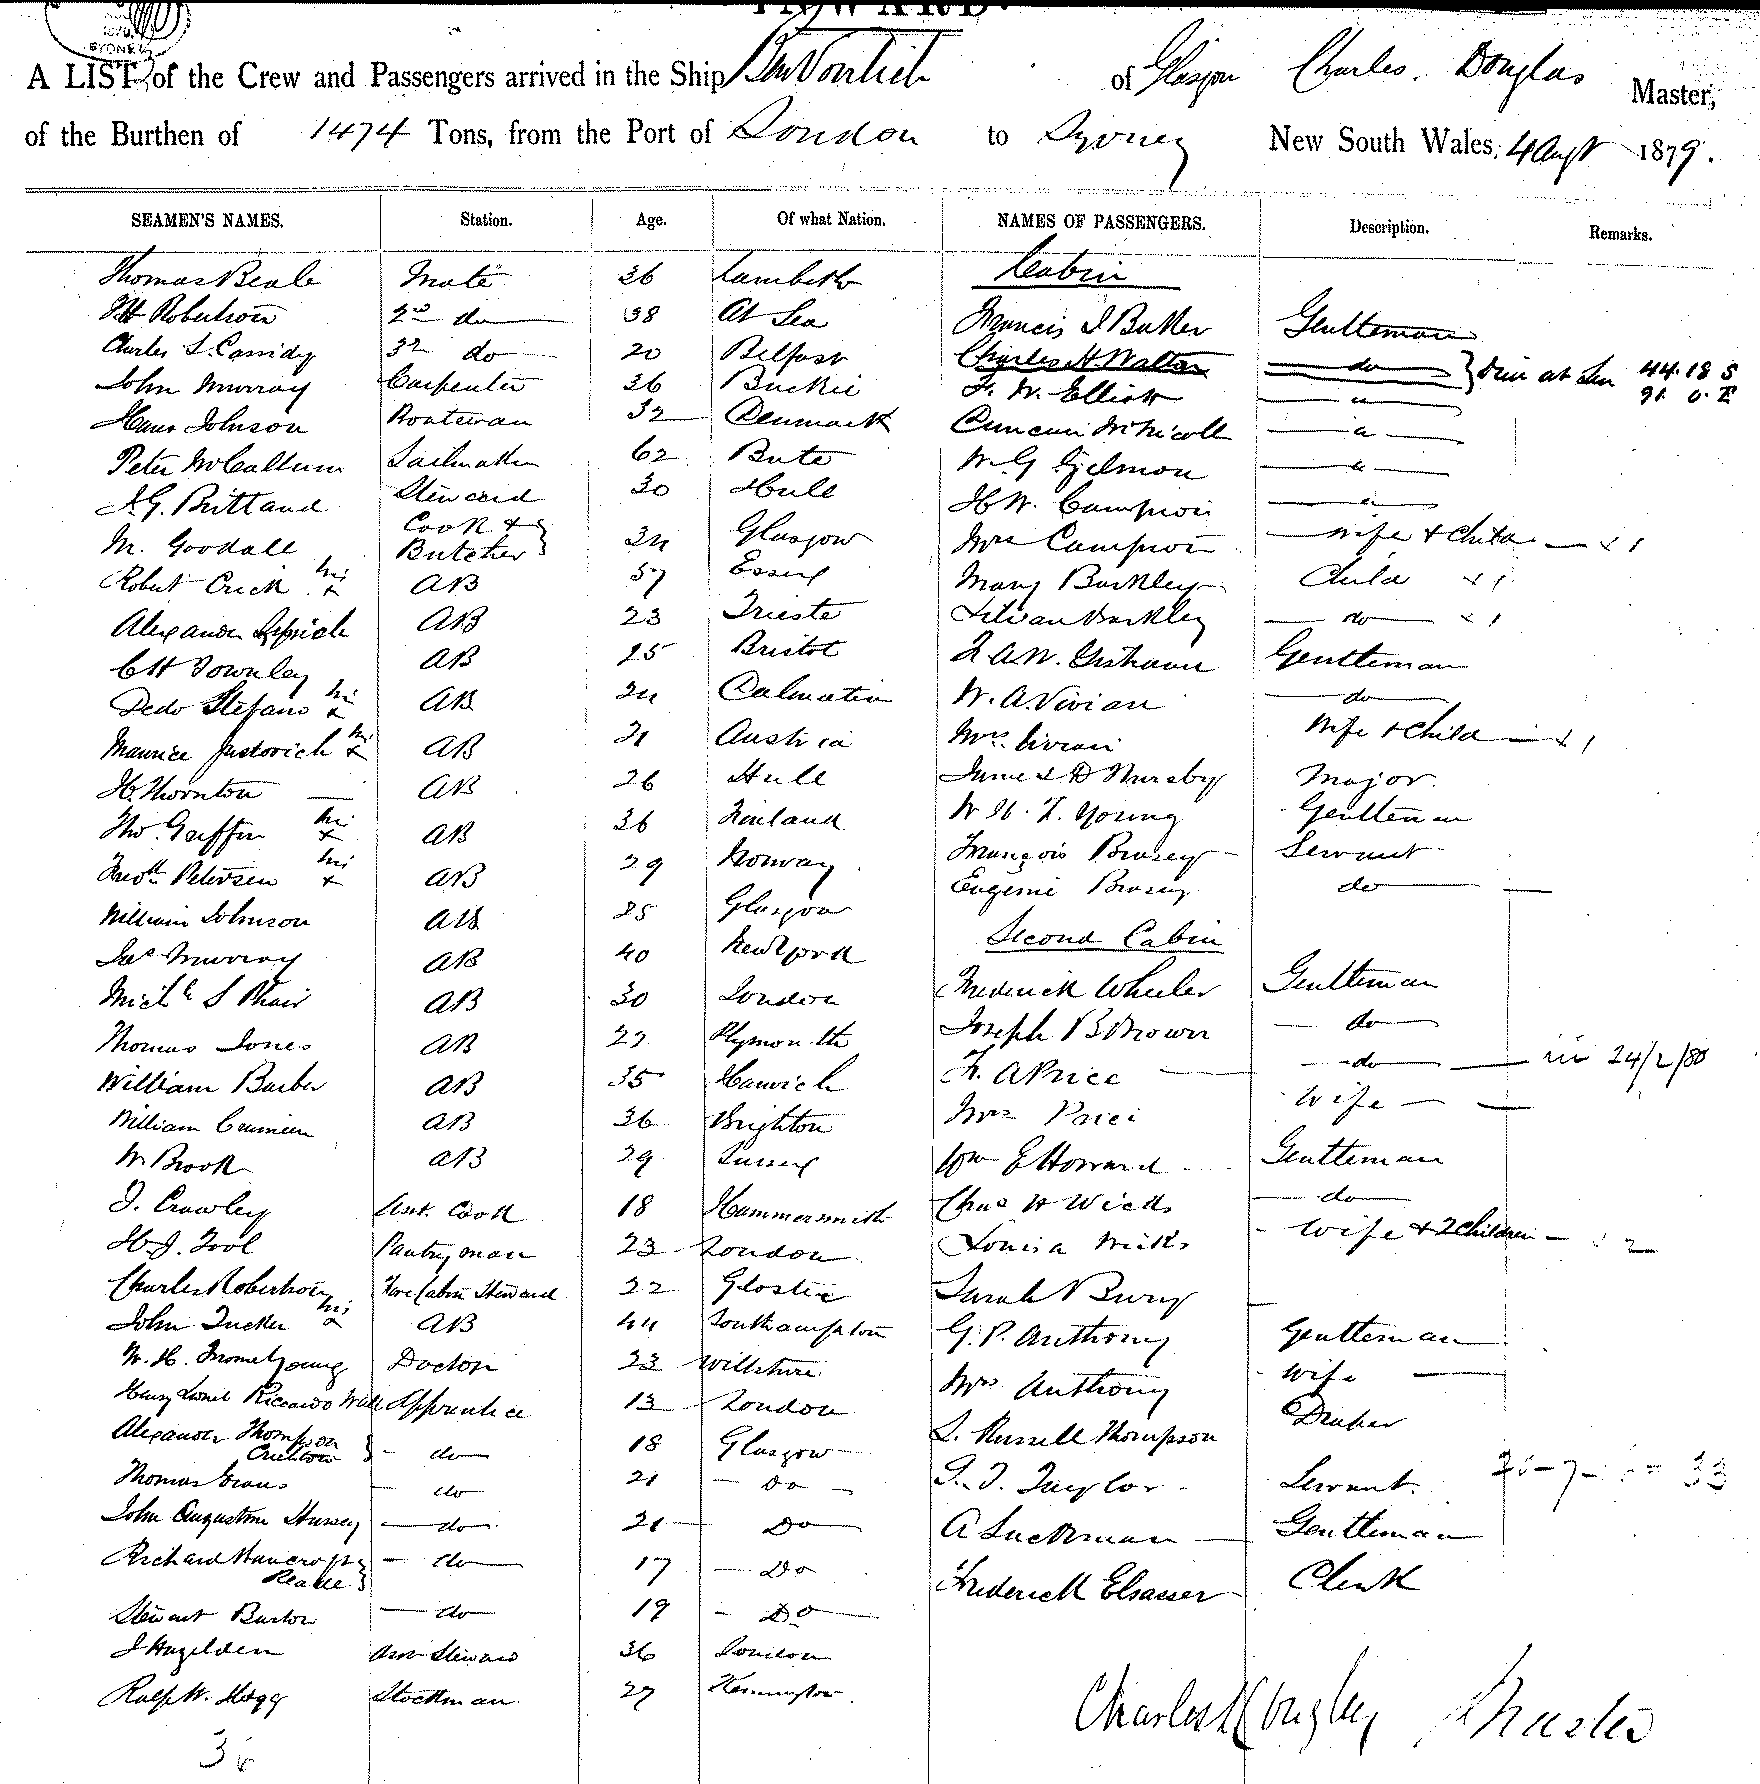 HOWARD.
SYDNEY
A LIST of the Crew and Passengers arrived in the Ship BenVoirlich of Glasgow Charles Douglas Master,
of the Burthen of 1474 Tons, from the Port of London to Sydney New South Wales, 4 Augt 1879.
SEAMEN'S NAMES. Station. Age. Of what Nation. NAMES OF PASSENGERS. Description. Remarks.
Thomas Beale Mate 36 Lambeth Cabin
Robertson 2nd do 38 At Sea Francis Gentleman
Charles S. Cassidy 3rd do 20 Belfast Charles H Walton do at Sea 44.18 S
John Murray Carpenter 36 Buckie F. W. Elliott "
Hans Johnson Boatswan 32 Denmark Duncan McNicoll "
Peter McCallum Sailmaker 62 Bute W. G "
J. G. Brittand Steward 30 Hull H W. Campion "
M. Goodall Cook & Butcher 34 Glasgow Mrs Campion Wife & Child 1
Robert Crick his x AB 37 Essex Mary Barkley Child 1
Alexander AB 23 Trieste Lilian Barkley do 1
CH Townley AB 25 Bristol Gentleman
Dedo Stefano his x AB 24 Dalmatia W. A. Vivian do
Maurice Justovich his x AB 21 Austria Mrs. Vivian Wife & Child 1
H. Thornton AB 26 Hull James D Major.
Tho. Griffin his x AB 36 Finland W. H. F. Young Gentleman
Petersen his x AB 29 Norway François Servant
William Johnson AB 25 Glasgow Eugenie do
Jas Murray AB 40 New York Second Cabin
Michl S Phair AB 30 London Frederick Wheeler Gentleman
Thomas Jones AB 22 Plymouth Joseph B Brown do
William Barber AB 35 Harwich F. A Price do 24/2/80
William AB 36 Brighton Mrs Price Wife
W. Brook AB 29 Sussex Wm E Howard Gentleman
J. Crawley Asst. Cook 18 Hammersmith Chas H Wicks do
H. J. Tool Pantryman 23 London Louisa Wicks Wife & 2 Children 2
Charles Robertson Fore Cabin Steward 22 Gloster Sarah
John Tucker his x AB 44 Southampton G. P. Anthony Gentleman
W. H. Frome Young Doctor 23 Wiltshire Mrs Anthony Wife
Henry Lionel Riccardo Wall Apprentice 13 London S. Russell Thompson Draper
Alexander Thompson Crichton do 18 Glasgow Taylor Servant.
Thomas Evans do 21 Do A Luckman Gentleman
John Augustine Hussey do 21 Do Frederick Elsasser Clerk
Richard Bancroft Reade do 17 Do
Stewart Burton do 19 Do
J Hazelden Steward 36 London
Ralph W. Hogg Stockman 27 Kennington
Charles Douglas Master